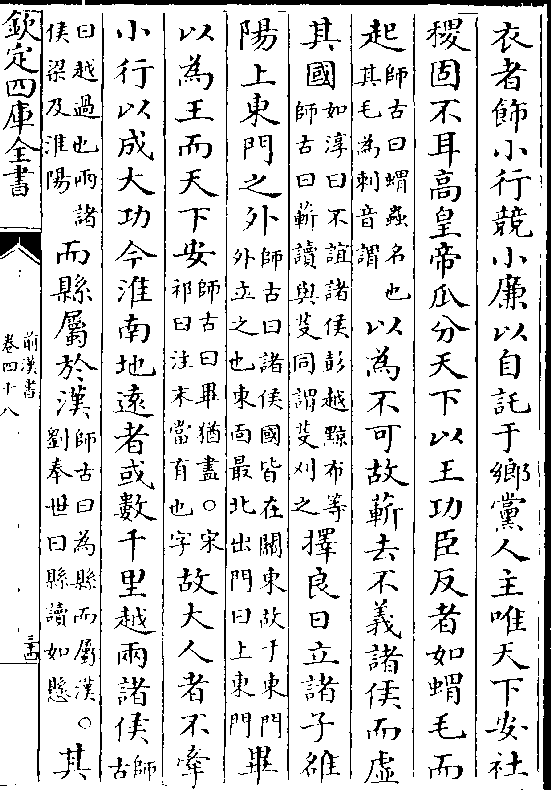 衣者飾小行競小廉以自託于鄉黨人主唯天下安社
稷固不耳高皇帝瓜分天下以王功臣反者如蝟毛而
起師古曰蝟蟲名也其毛為刺音謂以為不可故蘄去不義諸侯而虛
其國如淳曰不誼諸侯彭越黥布等師古曰蘄讀與芟同謂芟刈之擇良日立諸子雒
陽上東門之外師古曰諸侯國皆在關東故于東門外立之也東面最北出門曰上東門畢
以為王而天下安師古曰畢猶盡○宋祁曰注末當有也字故大人者不牽
小行以成大功今淮南地遠者或數千里越兩諸侯師古
曰越過也兩諸侯梁及淮陽而縣屬於漢師古曰為縣而屬漢○劉奉世曰縣讀如懸其
欽定四庫全書
前漢書
卷四十八